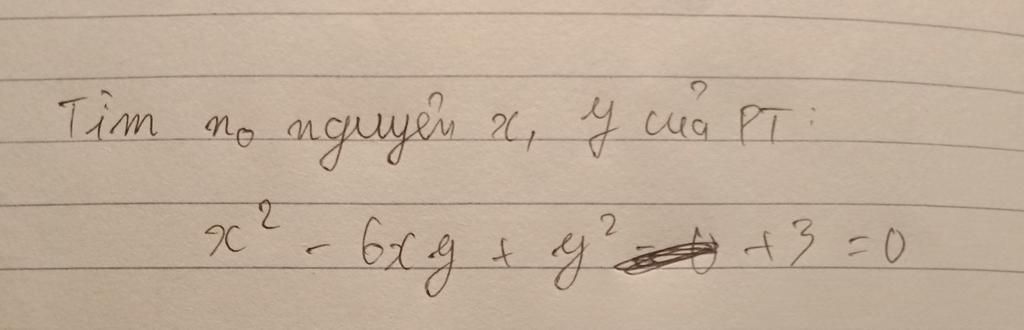 Tìm n₀ nguyên x, y của PT:
x² - 6xy + y² + 3 = 0